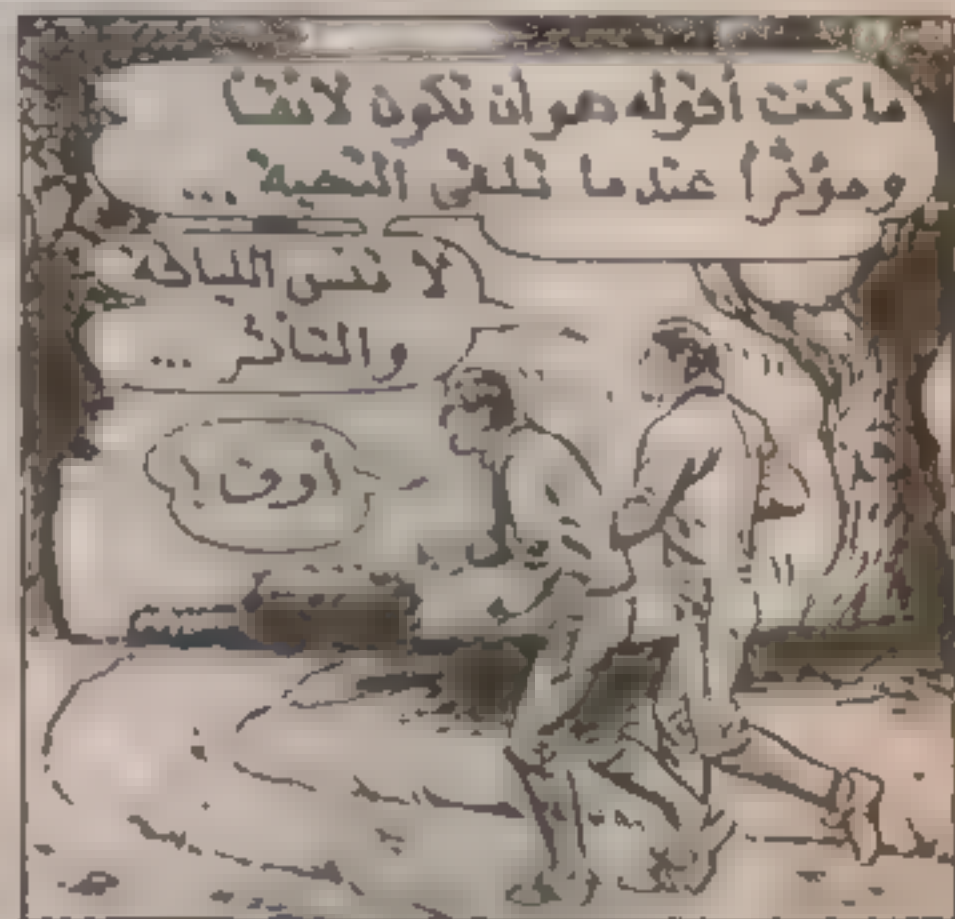 ما كنت أقوله هو أن تكون لائقاً
ومؤثراً عندما تلقي التحية ...
لا تنس اللباقة
والتأثير ...
أووف !